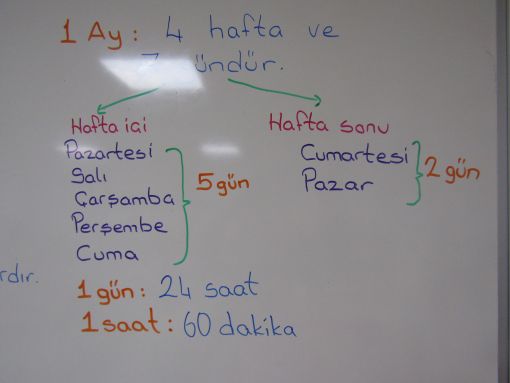 1 Ay: 4 hafta ve
7 gündür.
Hafta içi
Pazartesi
Salı
Çarşamba
Perşembe
Cuma
5 gün
Hafta sonu
Cumartesi
Pazar
2 gün
rdır.
1 gün: 24 saat
1 saat: 60 dakika